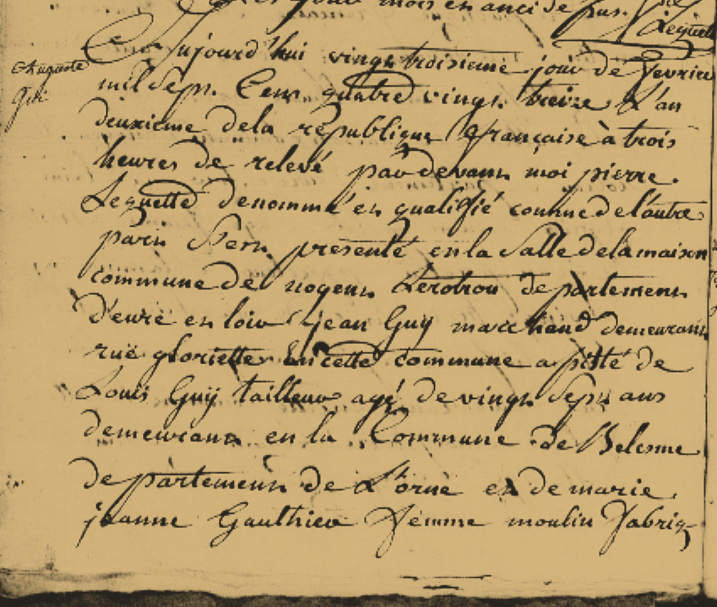 jour mois en an ci de sus.
Lequette
Auguste
Gui
Aujourd'hui vingt troisieme jour de fevrier
mil Sept. Cent quatre vingt treize L'an
deuxieme dela republique française à trois
heures de relevé par devant moi pierre
Lequette denommé en qualifié comme de l'autre
part S'est présenté en la Salle de la maison
commune de nogent Lerotrou departement
d'eure en loir jean Guy marchand demeurant
rue gloriette en cette commune a sisté de
Louis Guÿ tailleur agé de vingt Sept ans
demeurant en la Commune de Belesme
departement de L'orne et de marie
jeanne Gauthier femme moulin fabriq-